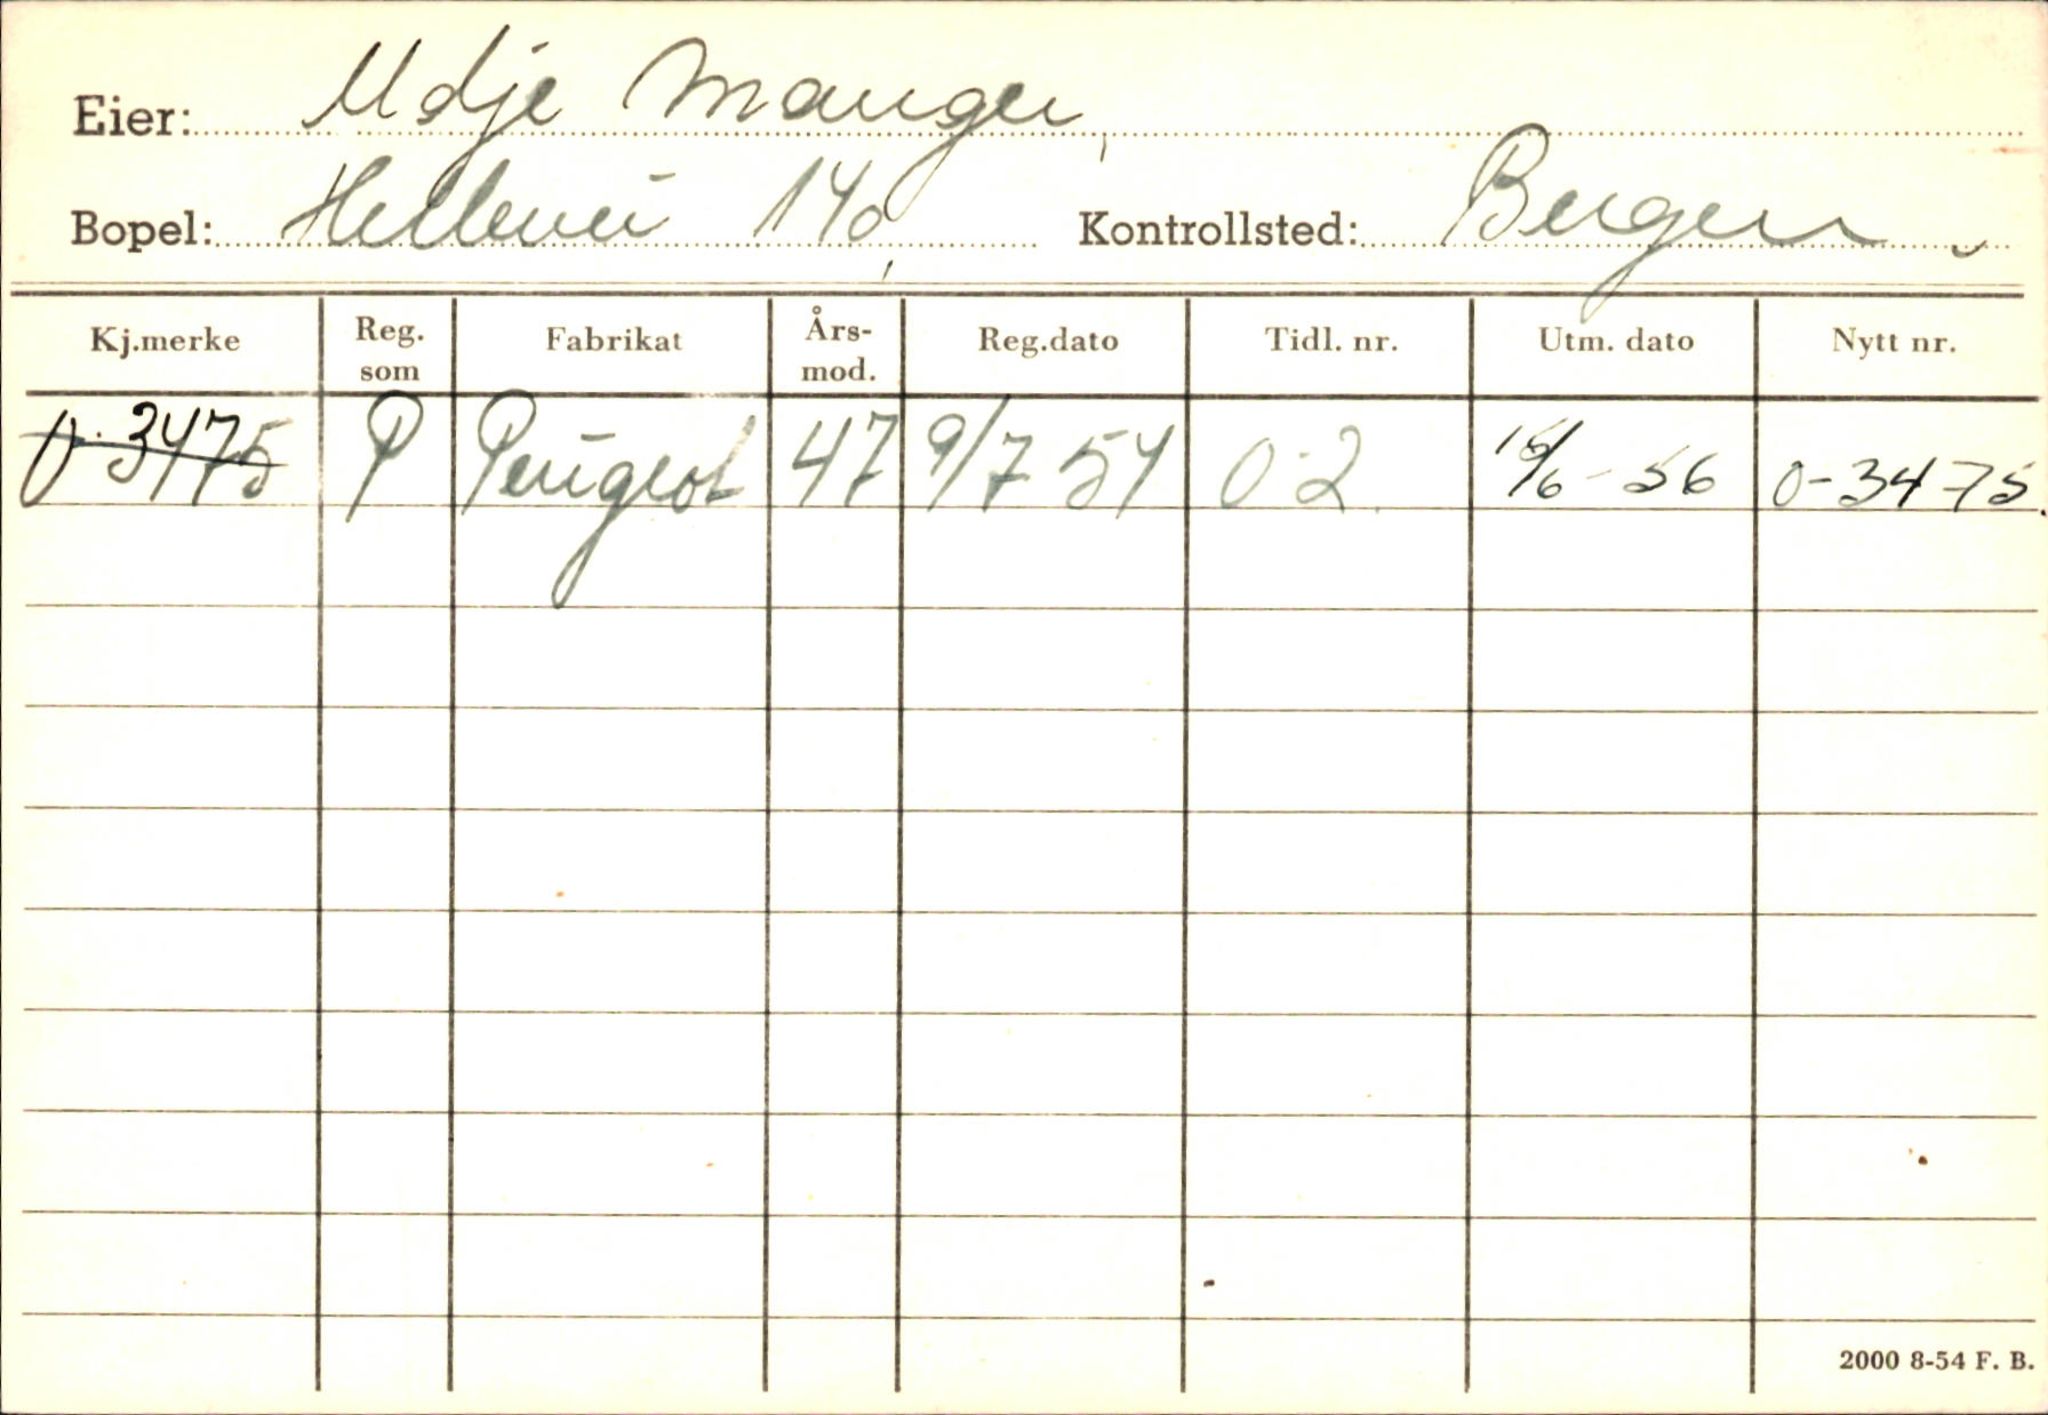 Eier: Mdje Manger,
Bopel: Hellevei 140, Kontrollsted: Bergen
Kj.merke Reg. som Fabrikat Års-mod. Reg.dato Tidl. nr. Utm. dato Nytt nr.
O-3475 P Peugeot 47 9/7 54 O-2 15/6-56 O-3475.
2000 8-54 F. B.